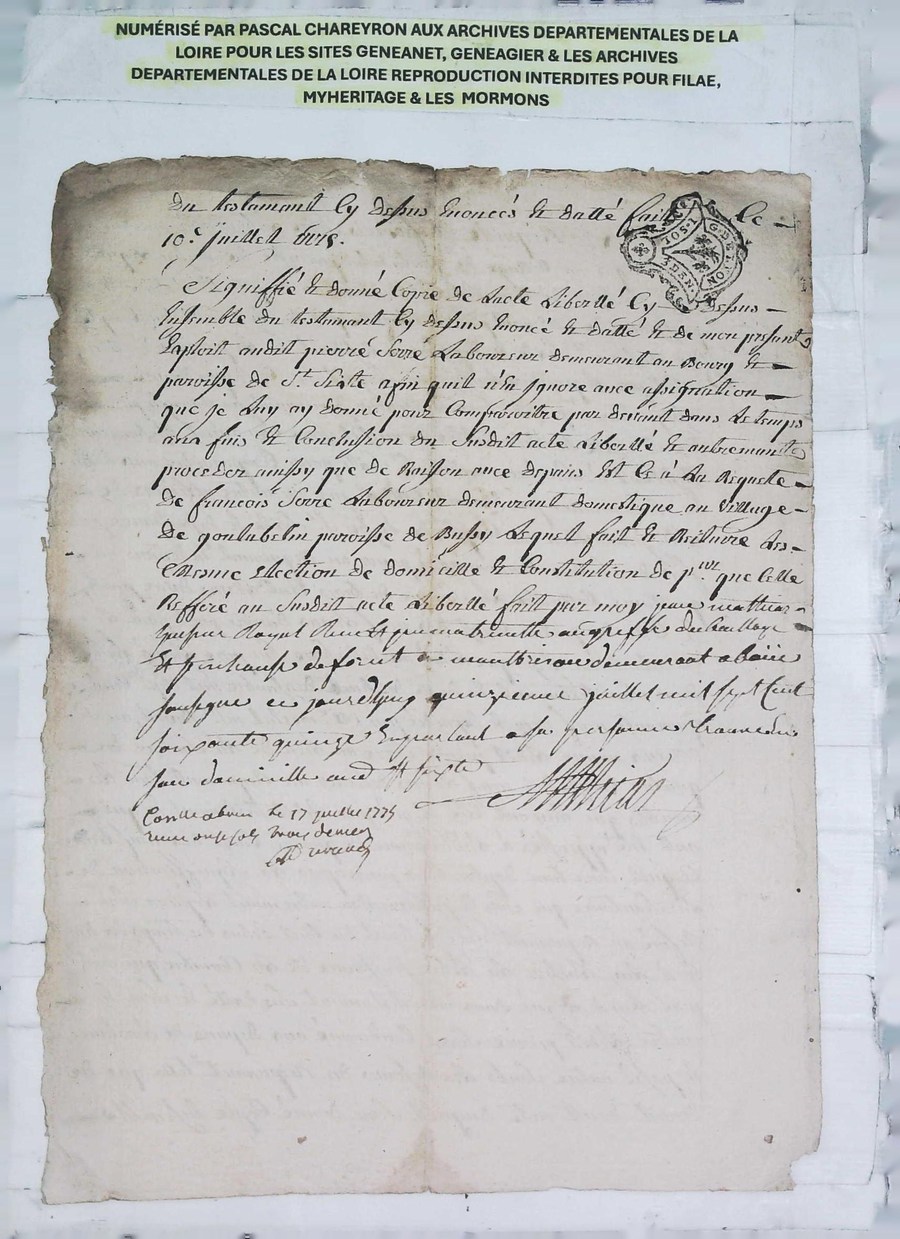 NUMÉRISÉ PAR PASCAL CHAREYRON AUX ARCHIVES DEPARTEMENTALES DE LA
LOIRE POUR LES SITES GENEANET, GENEAGIER & LES ARCHIVES
DEPARTEMENTALES DE LA LOIRE REPRODUCTION INTERDITES POUR FILAE,
MYHERITAGE & LES MORMONS
Du testamant Cy dessus Enoncés & datté fait le
10e Juillet 1775.
G. DE LYON
Signiffié & donné Copie de Lacte Libellé Cy dessus
Ensemble du testamant Cy dessus Enoncé & datté & de mon present
Exploit audit pierre Serre Laboureur demeurant au Bourg &
paroisse de St. Sixte afin quil n'En Ignore avec assignation
que je Luy ay donné pour Comparoitre par devant dans Le temps
aux fins & Conclusion du Susdit acte Libellé & autremant
proceder ainssy que de Raison avec depans Est Ce à La Requete
De francois Serre Laboureur demeurant domestique au Village
De paroisse de Bussy Lequel fait & Reiterre Les
Mesme Election de domicille & Constitution de p.eur que Celle
Refferé au Susdit acte Libellé fait par moy jean mathias
Royal Reçu & jmmatriculle au greffe du Baillage
de forest a montbrison demeurant a boën
soussigne ce jourdhuy quinzieme juillet mil sept Cent
soixante quinze En parlant a sa personne trouvé en
son domicille aud St sixte
Mathias
Conlle a boen le 17 juillet 1775
onze sols trois deniers